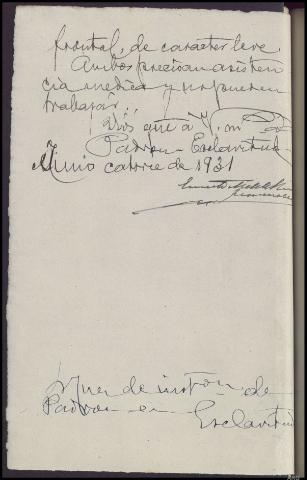 frontal, de carácter leve
Ambos precisan asisten
cia medica y no pueden
trabajar.
Dios gue a V. m
Padron - Esclavitud
Junio catorce de 1931
Sr Juez de inston de
Padron en Esclavitud